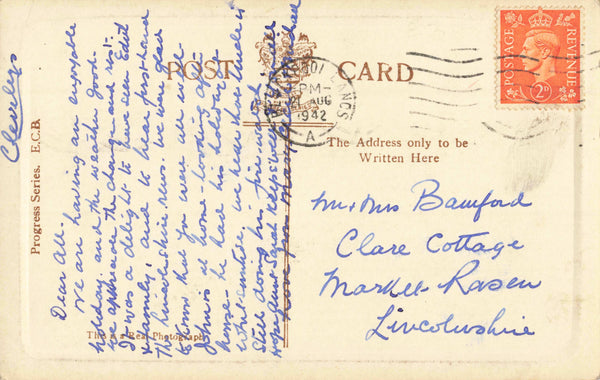 POST CARD
POSTAGE REVENUE
2D
PM
21 AUG
1942
A
The Address only to be
Written Here
Mr & Mrs Bamford
Clare Cottage
Market-Rasen
Lincolnshire
Progress Series. E.C.B.
This is a Real Photograph
Dear All.
We are having an enjoyable
holiday and the weather good.
we appreciate the change and rest.
It was a delight to have seen Edit
& family, and to hear first-hand
The Lincolnshire news. we were glad
to know that you were all
John's at home - looking after
house - he had his holiday
What a
Still doing his fire-watch
Hope Aunt Sarah keeps well
Love from